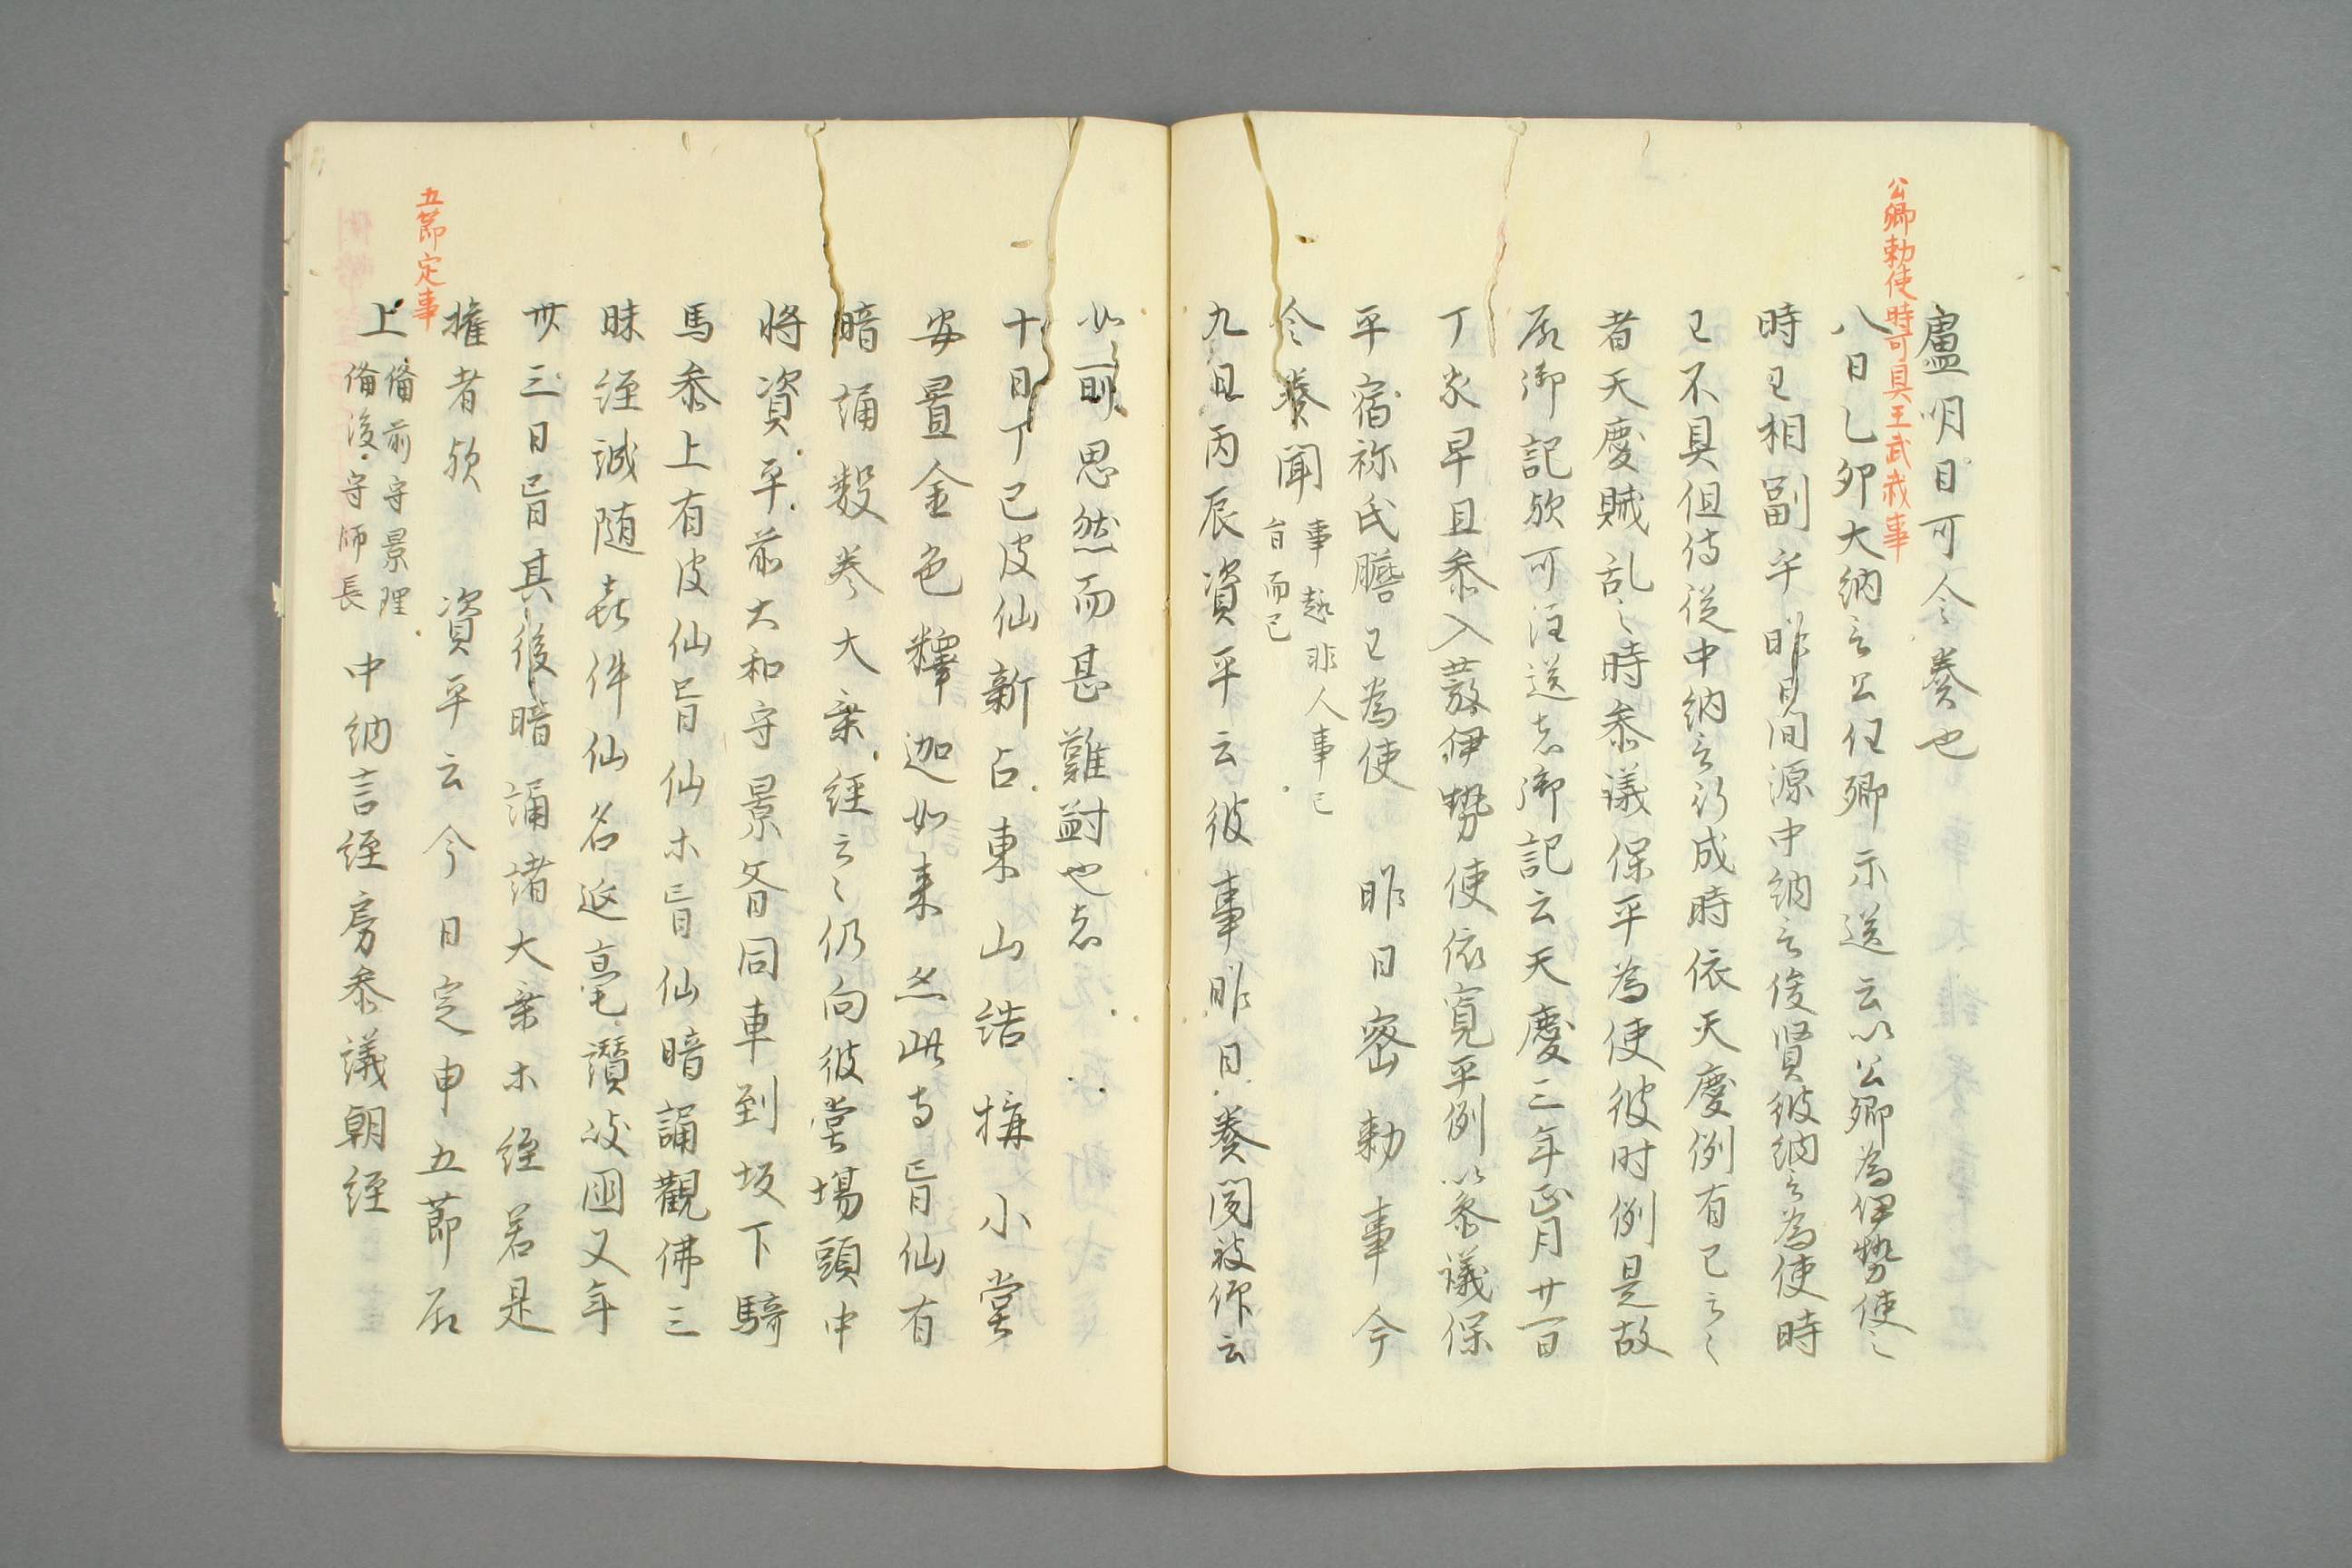 公卿勅使時可具王武哉事
盧明日可令奏也
八日乙卯大納言公任卿示送云以公卿為伊勢使之
時王相副乎昨日間源中納言俊賢彼納言為使時
王不具但侍従中納言行成時依天慶例有王云々
者天慶賊乱之時参議保平為使彼时例是故
殿御記歟可注送者御記云天慶三年正月廿一日
丁亥早旦参入發伊勢使依寛平例以参議保
平宿祢氏膽王為使 昨日密勅事今
令奏聞 事趣非人事已
旨而已
九日丙辰資平云彼事昨日奏聞被仰云
如前思然而甚難尌也者
十日丁巳皮仙新占東山結構小堂
安置金色釋迦如来其此寺盲仙有
暗誦数巻大乗経云々仍向彼堂場頭中
将資平前大和守景斉同車到坂下騎
馬参上有皮仙盲仙木盲仙暗誦觀佛三
昧経誠随喜件仙名延毫讃岐國又年
卅三日盲其後暗誦諸大乗木経若是
権者歟 資平云今日定申五節殿
五節定事
上 備前守景理
備後守師長 中納言経房参議朝経